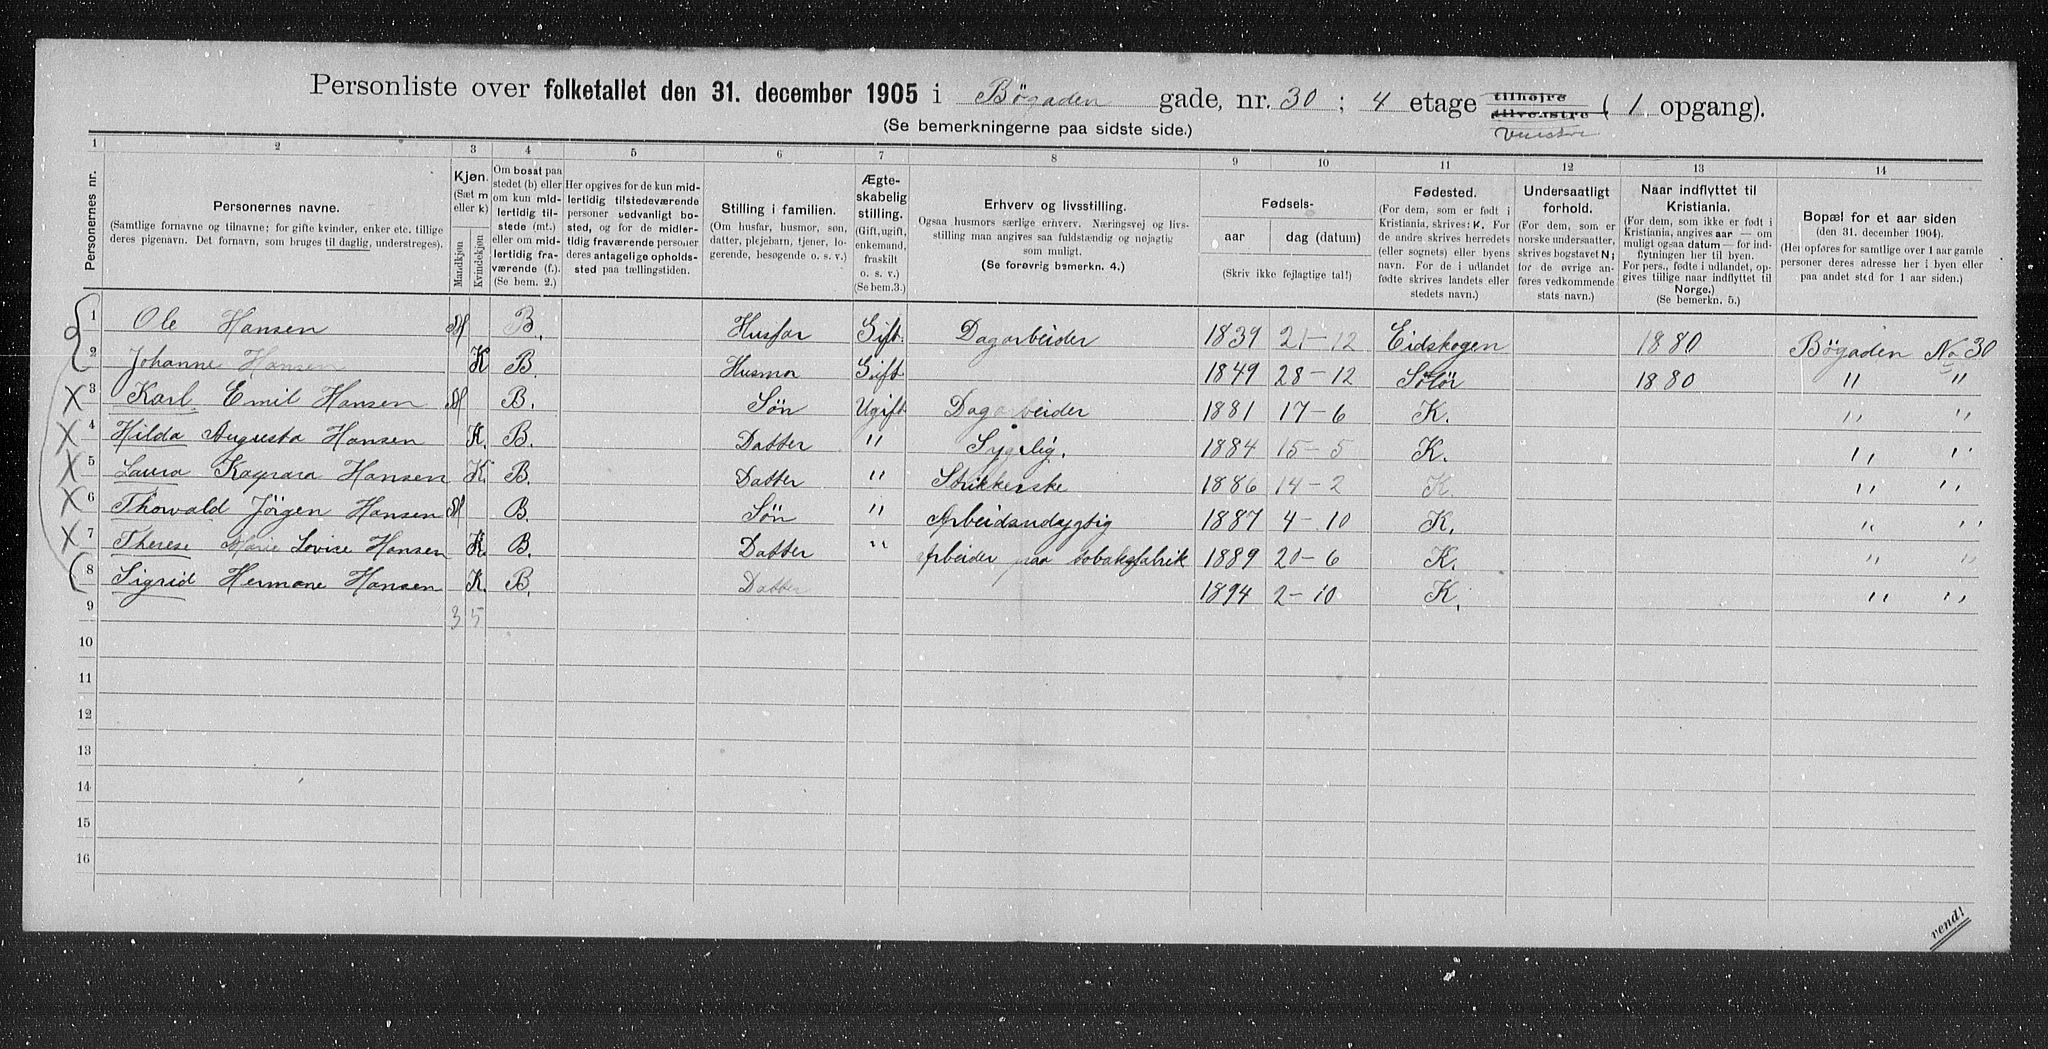 Personliste over folketallet den 31. december 1905 i Bøgaden gade, nr. 30 ; 4 etage tilhøjre tilvenstre Venstre ( 1 opgang).
(Se bemerkningerne paa sidste side.)
1 2 3 4 5 6 7 8 9 10 11 12 13 14
Personernes nr.
Personernes navne.
(Samtlige fornavne og tilnavne; for gifte kvinder, enker etc. tillige deres pigenavn. Det fornavn, som bruges til daglig, understreges).
Kjøn.
(Sæt m eller k)
Mandkjøn
Kvindekjøn
Om bosat paa stedet (b) eller om kun midlertidig tilstede (mt.) eller om midlertidig fraværende (f.).
(Se bem. 2.)
Her opgives for de kun midlertidig tilstedeværende personer sedvanligt bosted, og for de midlertidig fraværende personer deres antagelige opholdssted paa tællingstiden.
Stilling i familien.
(Om husfar, husmor, søn, datter, plejebarn, tjener, logerende, besøgende o. s. v.)
Ægteskabelig stilling.
(Gift, ugift, enkemand, fraskilt o. s. v.)
(Se bem.3.)
Erhverv og livsstilling.
Ogsaa husmors særlige erhverv. Næringsvej og livsstilling man angives saa fuldstændig og nøjagtig som muligt.
(Se forøvrig bemerkn. 4.)
Fødsels-
aar
dag (datum)
(Skriv ikke fejlagtige tal!)
Fødested.
(For dem, som er født i Kristiania, skrives: K. For de andre skrives herredets (eller sognets) eller byens navn. For de i udlandet fødte skrives landets eller stedets navn.)
Undersaatligt forhold.
(For dem, som er norske undersaatter, skrives bogstavet N; for de øvrige anføres vedkommende stats navn.)
Naar indflyttet til Kristiania.
(For dem, som ikke er født i Kristiania, angives aar — om muligt ogsaa datum — for indflytningen her til byen. For pers., fødte i udlandet, opgives tillige naar indflyttet til Norge.)
(Se bemerkn. 5.)
Bopæl for et aar siden
(den 31. december 1904).
(Her opføres for samtlige over 1 aar gamle personer deres adresse her i byen eller paa andet sted for 1 aar siden.)
1 Ole Hansen M B. Husfar Gift Dagarbeider 1839 21-12 Eidskogen 1880 Bøgaden No 30
2 Johanne Hansen K B. Husmor Gift 1849 28-12 Solør 1880 " "
3 Karl Emil Hansen M B. Søn Ugift Dagarbeider 1881 17-6 K. " "
4 Hilda Augusta Hansen K. B. Datter " Syerlig. 1884 15-5 K. " "
5 Laura Kaspara Hansen K. B. Datter " Strikkerske 1886 14-2 K " "
6 Thorvald Jörgen Hansen M B. Søn " Arbeidsudygtig 1887 4-10 K. " "
7 Therese Marie Lovise Hansen K. B. Datter " Arbeider paa tobaksfabrik 1889 20-6 K. " "
8 Sigrid Hermane Hansen K. B. Datter 1894 2-10 K. " "
9 3 5
10
11
12
13
14
15
16
vend!